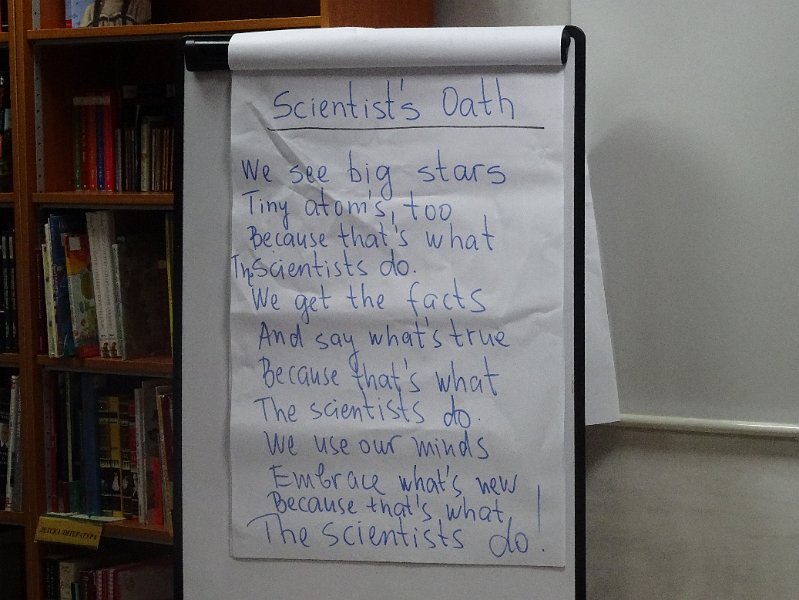 Scientist's Oath
We see big stars
Tiny atom's, too
Because that's what
The scientists do.
We get the facts
And say what's true
Because that's what
The scientists do.
We use our minds
Embrace what's new
Because that's what
The scientists do!
ДЕТСКА ЛИТЕРАТУРА